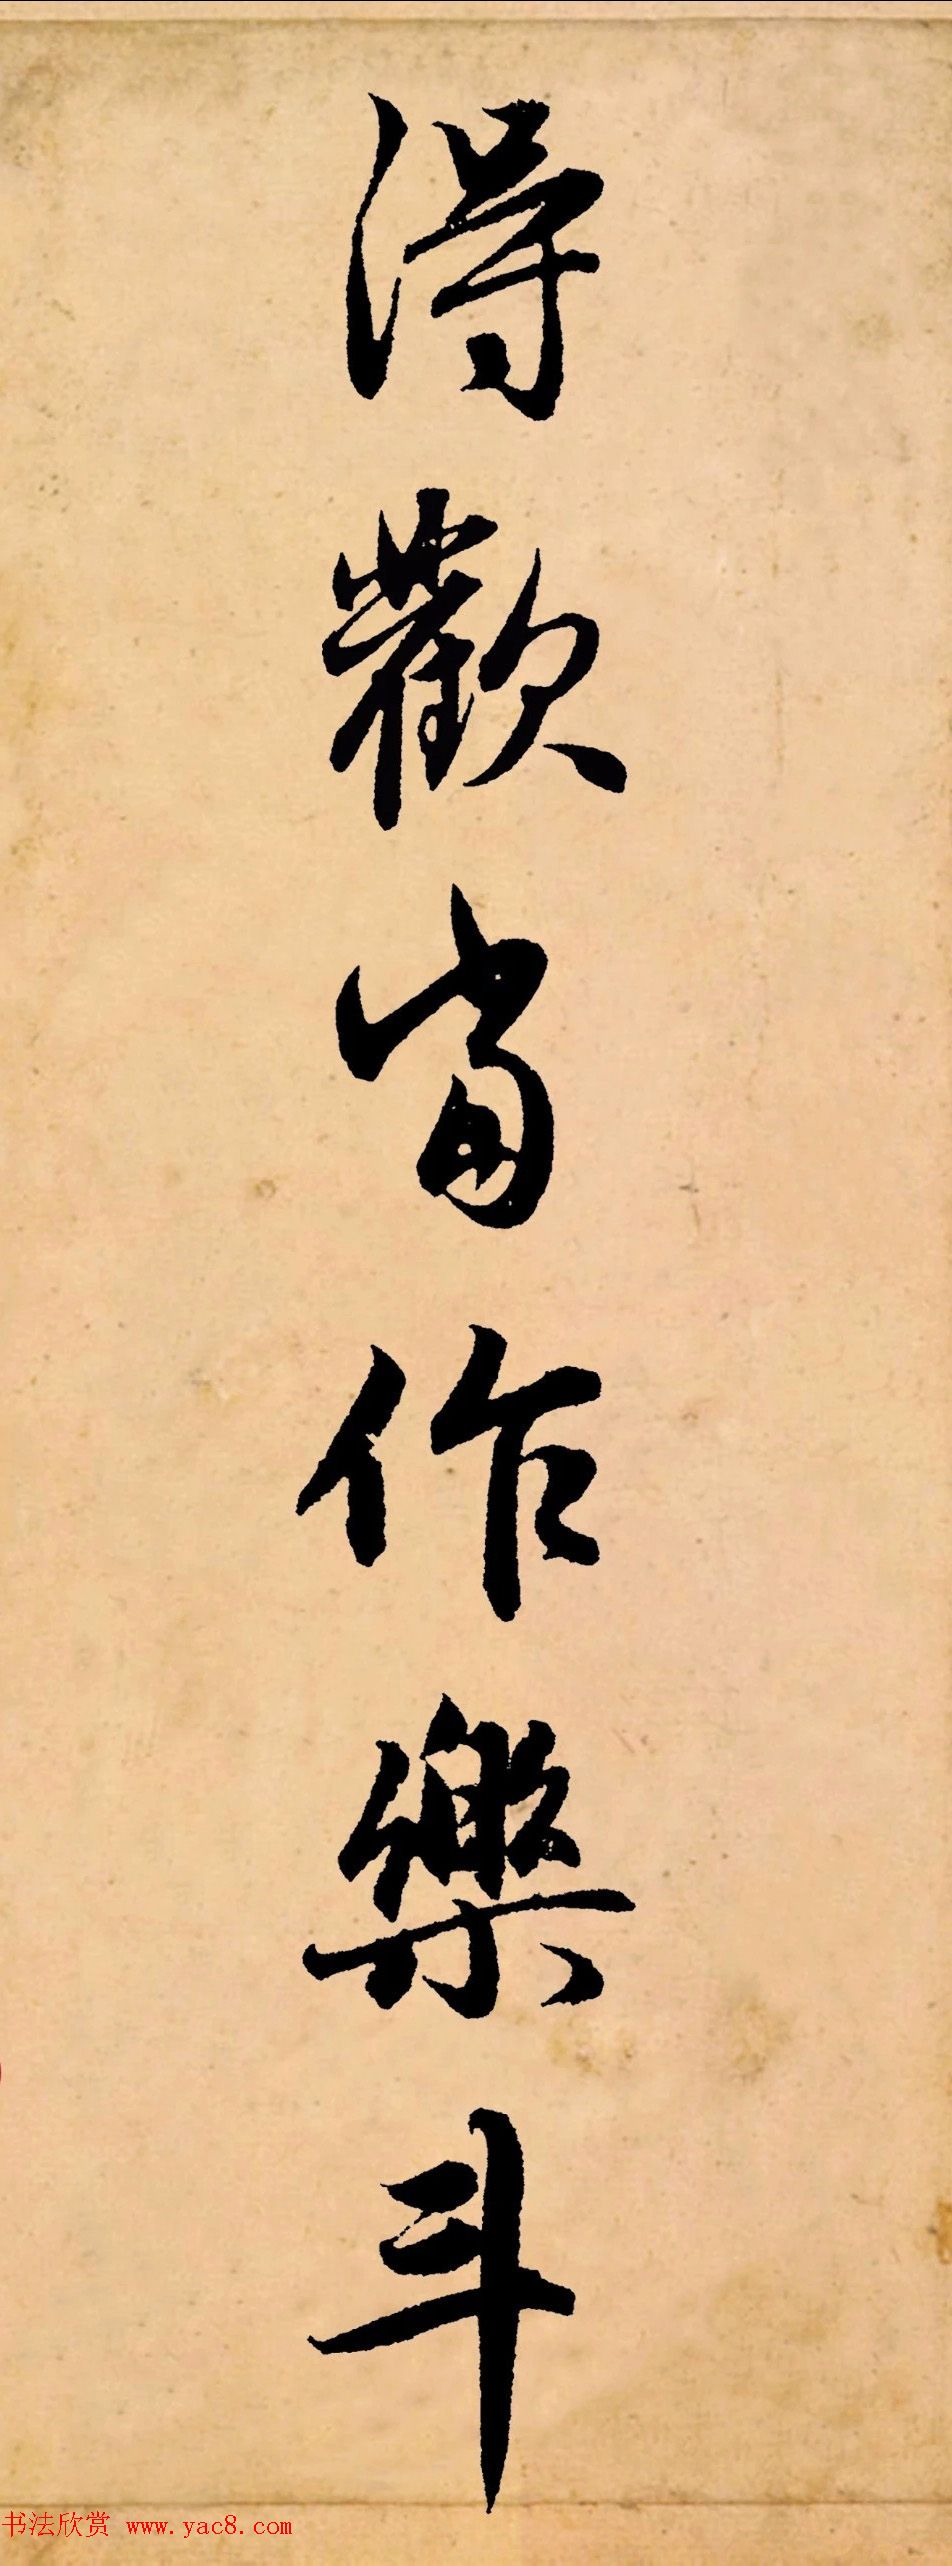 得歡當作樂斗
书法欣赏 www.yac8.com